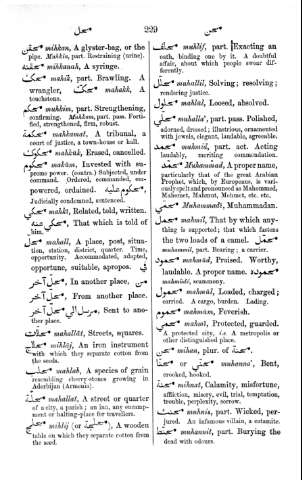 محل
229
محن
محقن mihkan, A glyster-bag, or the
pipe. Muhkin, part. Restraining (urine).
mihkanah, A syringe.
mahik, part. Brawling. A
wrangler, mahakk, A
touchstone.
محكم muhkim, part. Strengthening,
confirming. Muhkam, part. pass. Forti-
fied, strengthened, firm, robust.
محكمة mahkamat, A tribunal, a
court of justice, a town-house or hall.
محكوك mahkūk, Erased, cancelled.
محكوم mahkūm, Invested with su-
preme power. (contra.) Subjected, under
command. Ordered, commanded, em-
powered, ordained. محكوم عليه
Judicially condemned, sentenced.
mahkī, Related, told, written.
محكي عنه, That which is told of
him.
محل mahall, A place, post, situa-
tion, station, district, quarter. Time,
opportunity. Accommodated, adapted,
opportune, suitable, apropos. في
محل آخر, In another place, من
محل آخر, From another place.
مرسل الي محل آخر, Sent to ano-
ther place.
محلات mahallāt, Streets, squares.
محلاج mihlāj, An iron instrument
with which they separate cotton from
the seeds.
محلب mahlab, A species of grain
resembling cherry-stones growing in
Aderbijan (Armenia).
محلة mahallat, A street or quarter
of a city, a parish; an inn, any encamp-
ment or halting-place for travellers.
محلج mihlaj (or محلجة), A wooden
table on which they separate cotton from
the seed.
محلف muhlif, part. Exacting an
oath, binding one by it. A doubtful
affair, about which people swear dif-
ferently.
محلل muhallil, Solving; resolving;
rendering justice.
محلول mahlūl, Loosed, absolved.
محلي muhalla', part. pass. Polished,
adorned, dressed; illustrious, ornamented
with jewels, elegant, laudable, agreeable.
محمد muhmid, part. act. Acting
laudably, meriting commendation.
Muhammad, A proper name,
particularly that of the great Arabian
Prophet, which, by Europeans, is vari-
ously spelt and pronounced as Mahommed,
Mahomet, Mahmut, Mehmet, etc. etc.
محمدي Muhammadi, Muhammadan.
محمل mahmil, That by which any-
thing is supported; that which fastens
the two loads of a camel. محمل
muhammil, part. Bearing; a carrier.
محمود mahmūd, Praised. Worthy,
laudable. A proper name. محمودة
mahmūdī, scammony.
محمول mahmūl, Loaded, charged;
carried. A cargo, burden. Lading.
محموم mahmūm, Feverish.
mahmī, Protected, guarded.
A protected city, i.e. A metropolis or
other distinguished place.
محن mihan, plur. of محنة.
or محني muhanna', Bent,
crooked, hooked.
محنة mihnat, Calamity, misfortune,
affliction, misery, evil, trial, temptation,
trouble, perplexity, sorrow.
محنث muhnis, part. Wicked, per-
jured. An infamous villain, a catamite.
محنط muhannit, part. Burying the
dead with odours.